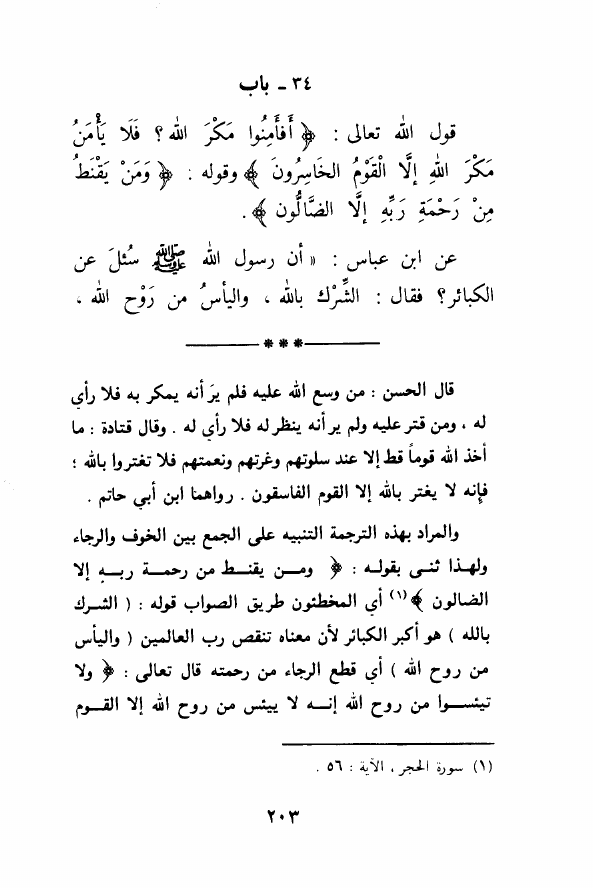 ٣٤ - باب
قول الله تعالى : ﴿ أَفَأَمِنُوا مَكْرَ الله ؟ فَلَا يَأْمَنُ
مَكْرَ اللهِ إِلَّا الْقَوْمُ الخَاسِرُونَ ﴾ وقوله : ﴿ وَمَنْ يَقْنَطُ
مِنْ رَحْمَةِ رَبِّهِ إِلَّا الضَّالُّون ﴾ .
عن ابن عباس : « أن رسول الله ﷺ سُئلَ عن
الكبائر؟ فقال : الشِّرْك بالله ، واليأسُ من رَوْح الله ،
***
قال الحسن : من وسع الله عليه فلم يرَ أنه يمكر به فلا رأي
له ، ومن قتر عليه ولم ير أنه ينظر له فلا رأي له . وقال قتادة : ما
أخذ الله قوماً قط إلا عند سلوتهم وغرتهم ونعمتهم فلا تغتروا بالله ؛
فإنه لا يغتر بالله إلا القوم الفاسقون . رواهما ابن أبي حاتم .
والمراد بهذه الترجمة التنبيه على الجمع بين الخوف والرجاء
ولهذا ثنى بقوله : ﴿ ومن يقنط من رحمة ربهِ إلا
الضالون ﴾(١) أي المخطئون طريق الصواب قوله : ( الشرك
بالله ) هو أكبر الكبائر لأن معناه تنقص رب العالمين ( واليأس
من روح الله ) أي قطع الرجاء من رحمته قال تعالى : ﴿ ولا
تيئسوا من روح الله إنه لا ييئس من روح الله إلا القوم
(١) سورة الحجر ، الآية : ٥٦ .
٢٠٣